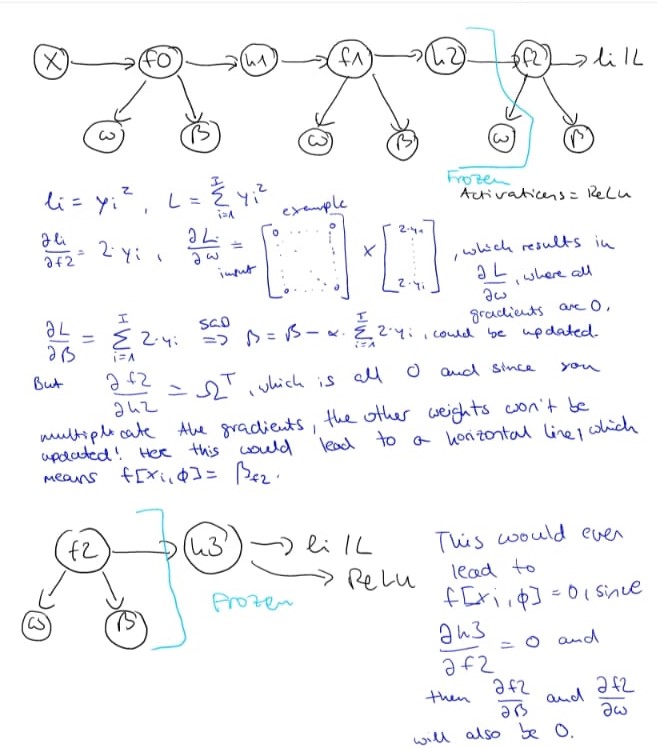 X f0 h1 f1 h2 f2 li / L
ω β ω β ω β
Frozen
Activations = ReLu
li = yi², L = Σ_{i=1}^{I} yi²
example
∂li/∂f2 = 2·yi, ∂L/∂ω = [0 ... 0 ... 0 ... 0] × [2·y1 ... 2·yi], which results in
input
∂L/∂ω, where all
gradients are 0.
∂L/∂β = Σ_{i=1}^{I} 2·yi SGD ⇒ β = β - α· Σ_{i=1}^{I} 2·yi, could be updated.
But ∂f2/∂h2 = Ω^T, which is all 0 and since you
the gradients, the other weights won't be
updated! this would lead to a horizontal line, which
means f[xi, ϕ] = β_{f2}.
f2 h3 li / L
ReLu
ω β
Frozen
This would even
lead to
f[xi, ϕ] = 0, since
∂h3/∂f2 = 0 and
then ∂f2/∂β and ∂f2/∂ω
will also be 0.